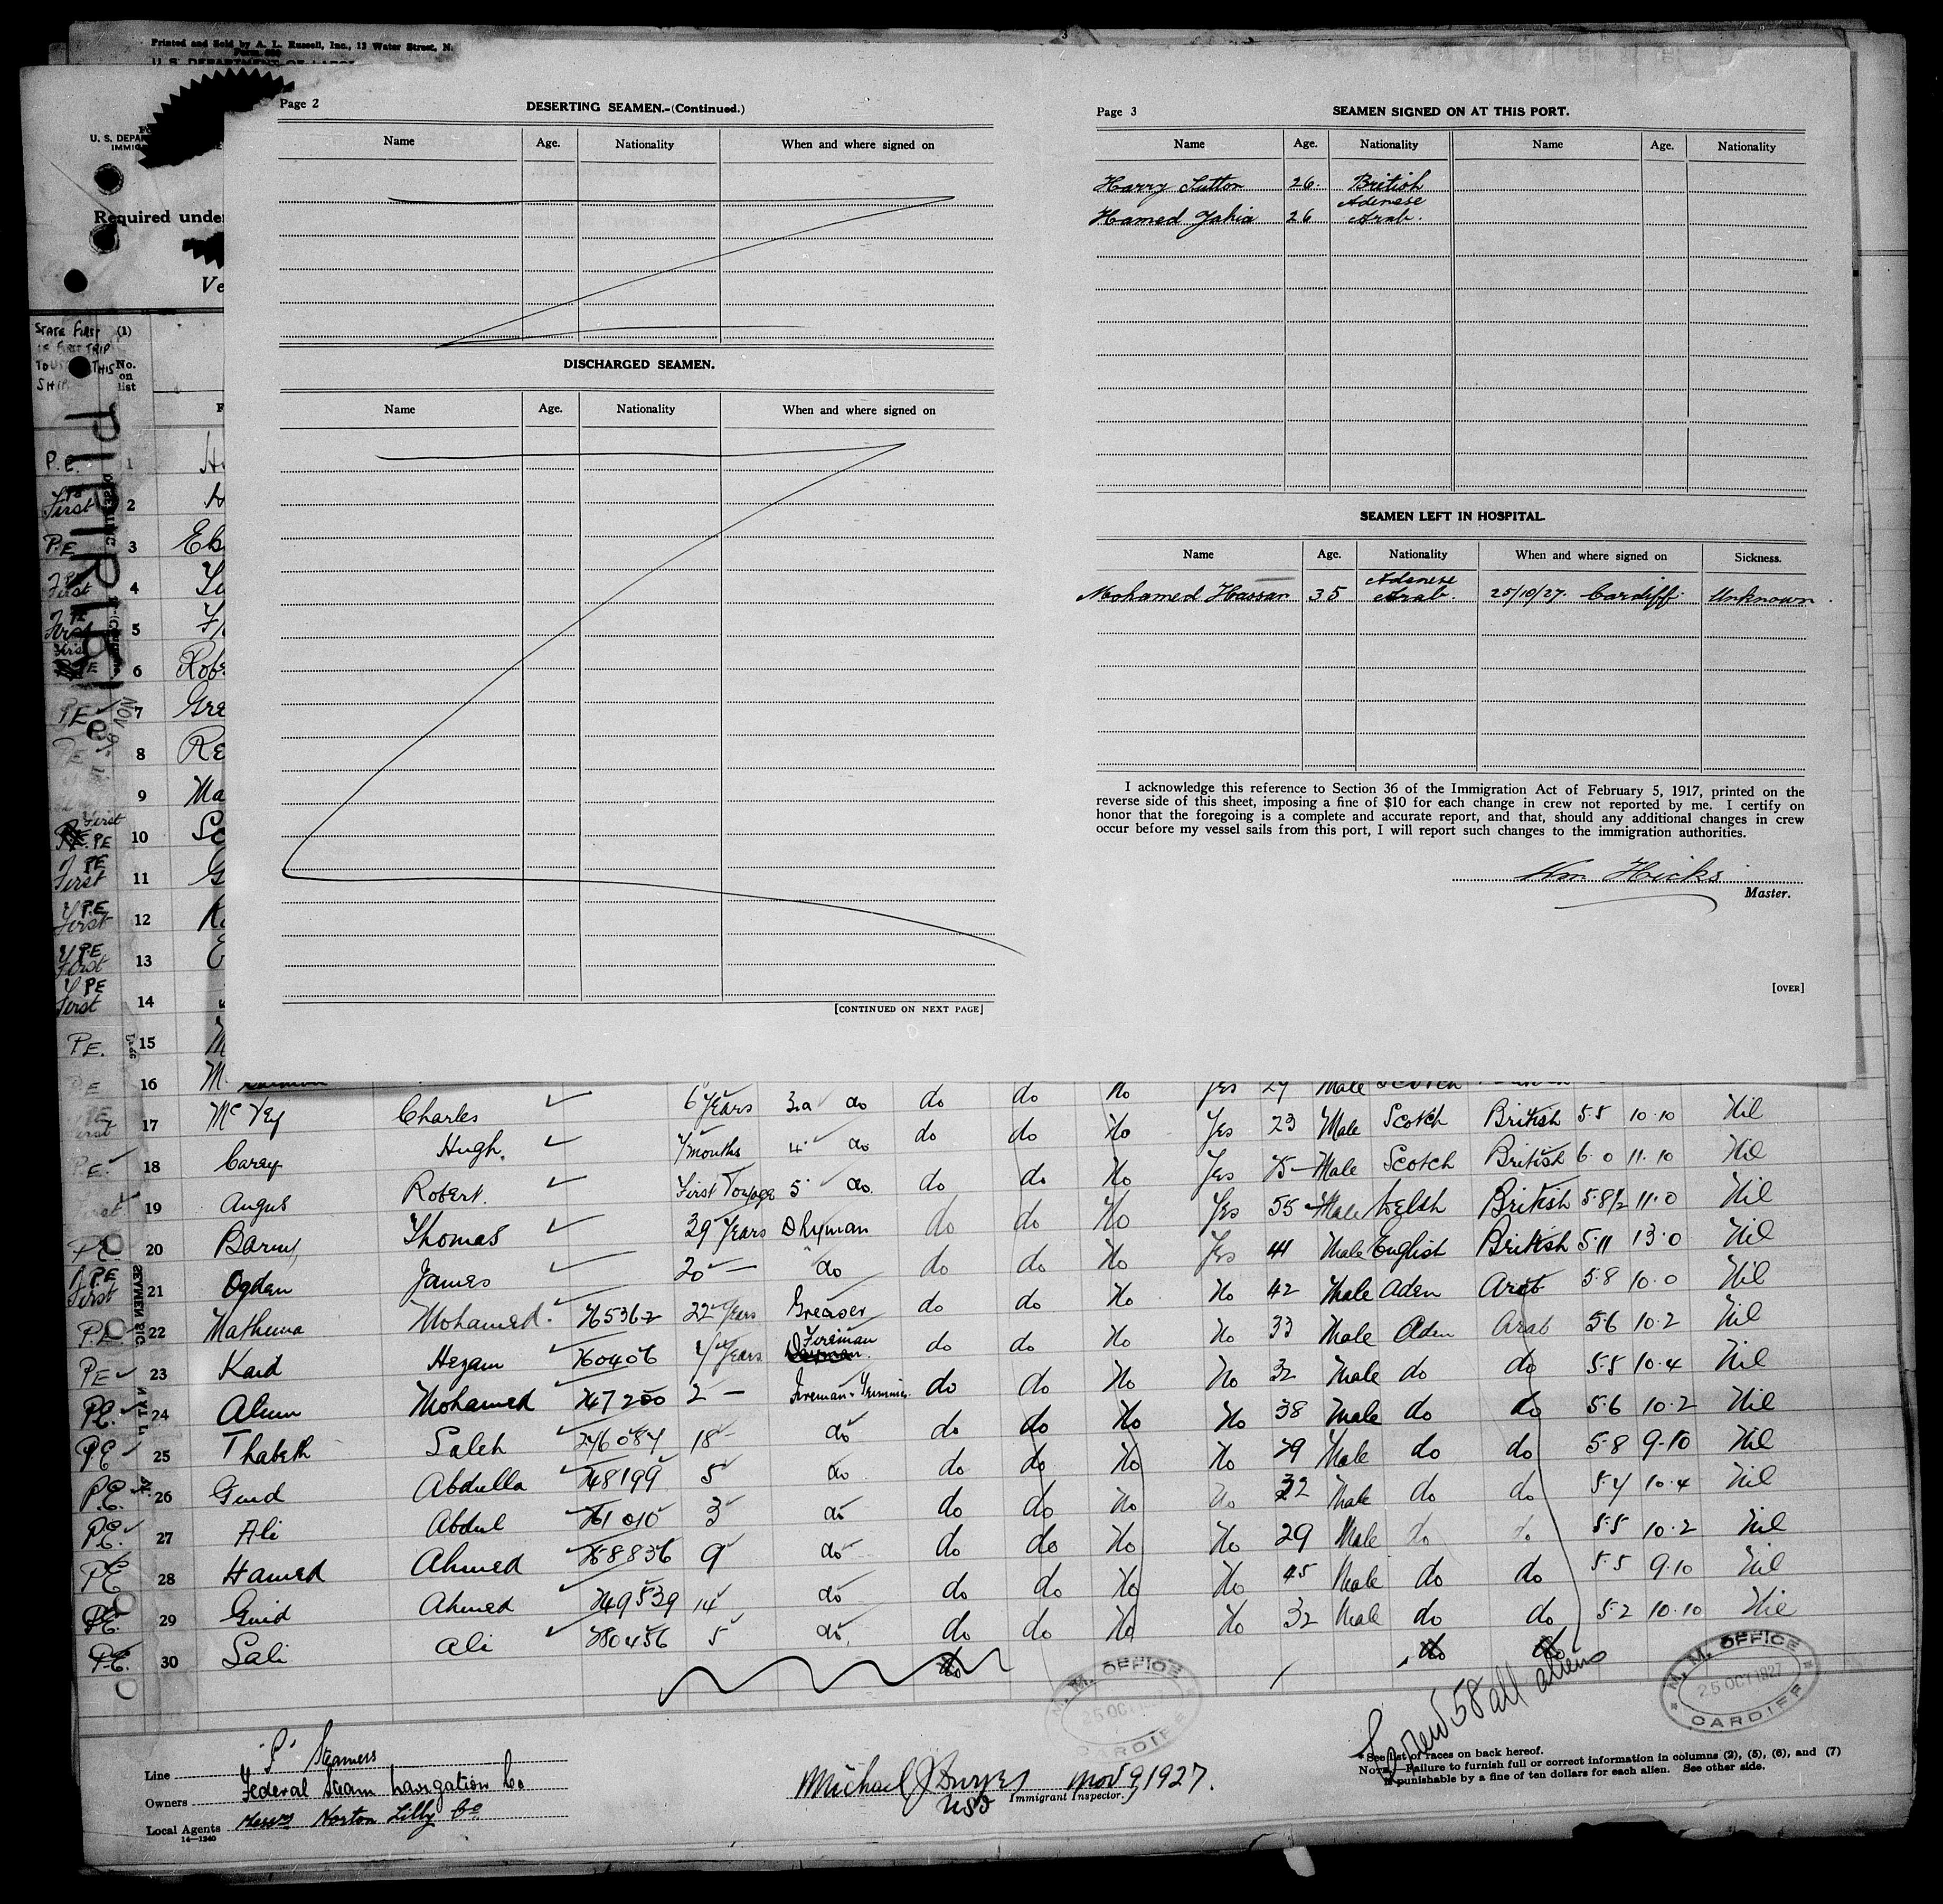 Printed and Sold by A. L. Russell, Inc., 12 Water Street, N.
U. S. DEPARTMENT OF LABOR
U. S. DEPAR
IMMIG
Required unde
Ve
STATE FIRST
IF FIRST TRIP
TO U.S. THIS
SHIP.
(1)
No.
on
list
Page 2
DESERTING SEAMEN.-(Continued.)
Name Age. Nationality When and where signed on
DISCHARGED SEAMEN.
Name Age. Nationality When and where signed on
[CONTINUED ON NEXT PAGE]
Page 3
SEAMEN SIGNED ON AT THIS PORT.
Name Age. Nationality Name Age. Nationality
Harry Sutton 26. British
Hamed Yahia 26 Adenese Arab.
SEAMEN LEFT IN HOSPITAL.
Name Age. Nationality When and where signed on Sickness.
Mohamed Hassan 35 Adenese Arab. 25/10/27. Cardiff. Unknown.
I acknowledge this reference to Section 36 of the Immigration Act of February 5, 1917, printed on the
reverse side of this sheet, imposing a fine of $10 for each change in crew not reported by me. I certify on
honor that the foregoing is a complete and accurate report, and that, should any additional changes in crew
occur before my vessel sails from this port, I will report such changes to the immigration authorities.
Wm Hicks
Master.
[OVER]
P.E. 1
PE First 2
P.E. 3 Eb
PE First 4
PE First 5
First PE 6 Robe
PE 7 Gre
PE 8 Re
9 Ma
First PE 10 Sc
PE First 11 G
PE First 12 K
PE First 13
PE First 14
PE. 15 M
PE 16 M
17 McVey Charles 6 Years 3rd do do do No Yes 23 Male Scotch British 5.5 10.10 Nil
P.E. 18 Carey Hugh. 7 months 4 do do do No Yes 25 Male Scotch British 6.0 11.10 Nil
First 19 Angus Robert. First Voyage 5 do. do do No Yes 55 Male Welsh British 5.8½ 11.0 Nil
PE 20 Barry, Thomas 39 Years Dkyman do do No Yes 41 Male English British 5.11 13.0 Nil
PE First 21 Ogden James 20 — do do do No No 42 Male Aden Arab 5.8 10.0 Nil
P.E. 22 Mathuna Mohamed. 765362 22 Years Greaser do do No No 33 Male Aden Arab 5.6 10.2 Nil
PE 23 Kaid Hezam 760406 Years Fireman do do No No 32 Male do do 5.5 10.4 Nil
PE. 24 Alum Mohamed 747200 2 — Fireman-Trimmer do do No No 38 Male do do 5.6 10.2 Nil
PE 25 Thabeth Saleh 746084 18 — do do do No No 29 Male do do 5.8 9.10 Nil
P.E. 26 Guid Abdulla 748199 5 do do do No No 32 Male do do 5.4 10.4 Nil
PE. 27 Ali Abdul 761010 3 do do do No No 29 Male do do 5.5 10.2 Nil
PE 28 Hamed Ahmed 758836 9 do do do No No 45 Male do do 5.5 9.10 Nil
PE. 29 Guid Ahmed 749539 14 do do do No No 32 Male do do 5.2 10.10 Nil
P.E. 30 Sali Ali 780456 5 do.
M. M. OFFICE
25 OCT 1927
CARDIFF
M. M. OFFICE
25 OCT 1927
CARDIFF
crew 58 all aliens
Line "S" Steamers
Owners Federal Steam Navigation Co
Local Agents Messrs Norton Lilly Co
14—1240
Michael J Nov 9, 1927.
Immigrant Inspector.
*See list of races on back hereof.
NOTE.—Failure to furnish full or correct information in columns (2), (5), (6), and (7)
is punishable by a fine of ten dollars for each alien. See other side.